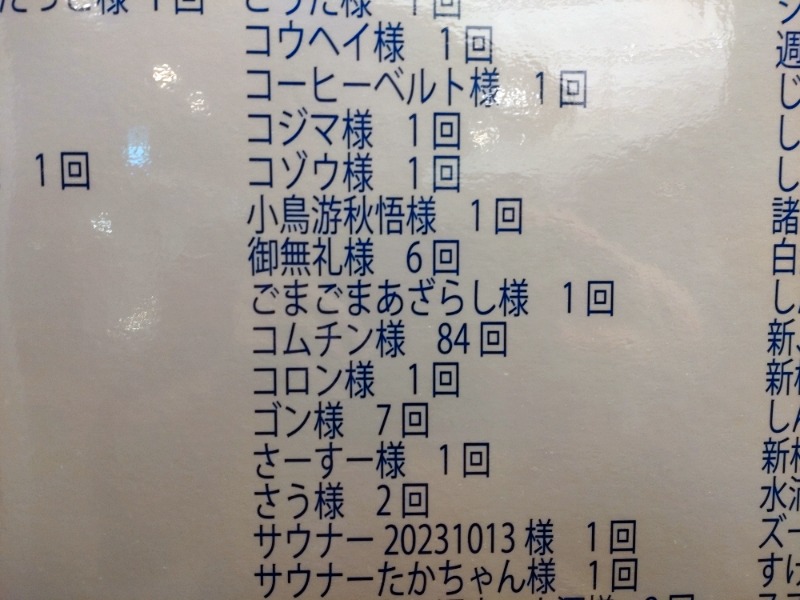 様 1回
こうた様 1回
コウヘイ様 1回
コーヒーベルト様 1回
コジマ様 1回
コゾウ様 1回
小鳥游秋悟様 1回
御無礼様 6回
ごまごまあざらし様 1回
コムチン様 84回
コロン様 1回
ゴン様 7回
さーすー様 1回
さう様 2回
サウナー20231013様 1回
サウナーたかちゃん様 1回
1回
週
じ
し
し
諸
白
し
新
新
し
新
水
ズー
すけ